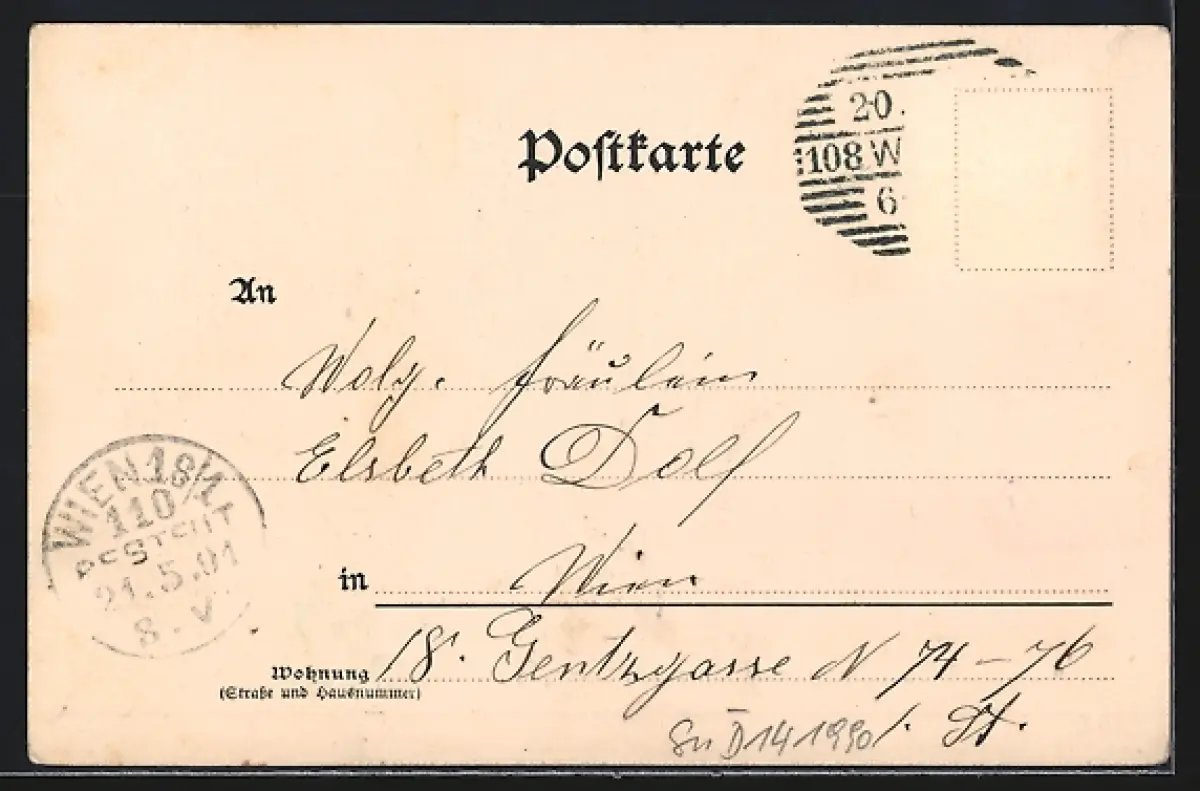 Postkarte
20.
108 W
6
An
Wolg. Fräulein
Elsbeth Dolf
in Wien
Wohnung 18. Gentzgasse N 74-76
(Straße und Hausnummer)
1. St.
WIEN 18/1
110
BESTELLT
21.5.01
8.V